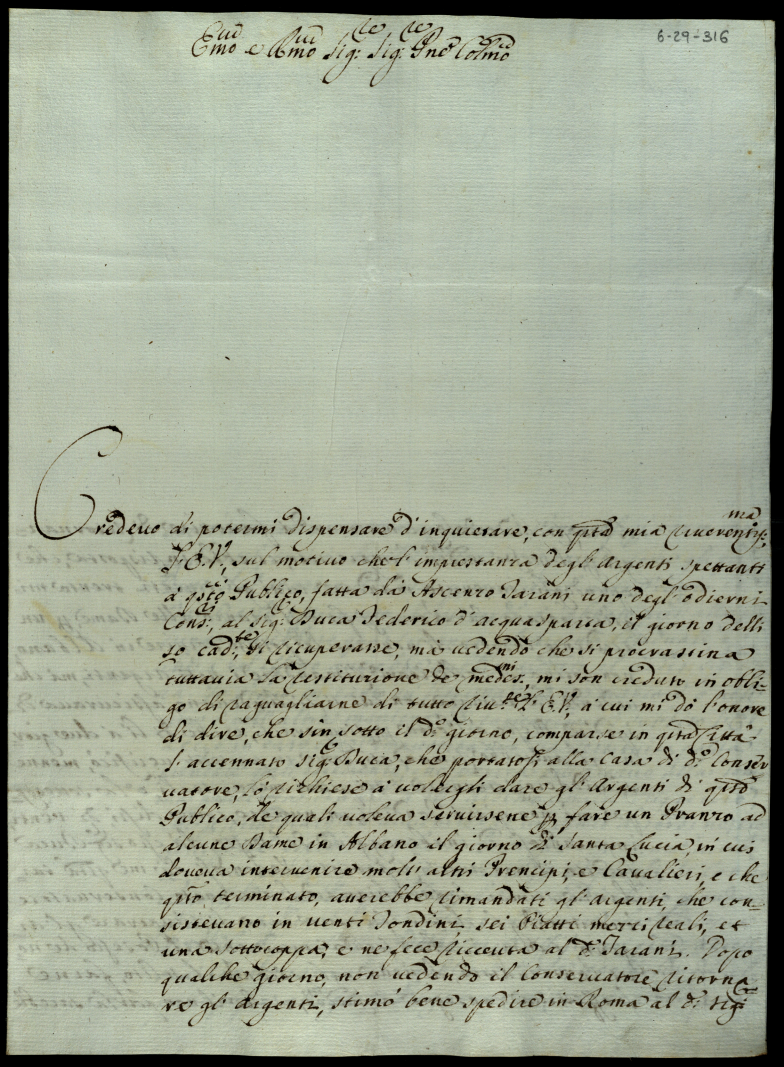 6-29-316
Em̃o e Rm̃o Sig:re Sig:re Pñe Colm̃o
Credevo di potermi dispensare d'inquietare, con q̃sta mia riverentis:ma
l'E.V., sul motivo che l'imprestanza degl'Argenti spettanti
à q̃sto Publico, fatta dà Ascenzo Tarani uno degl'odierni
Cons:ri, al sig: Duca Federico d'acquasparta, il giorno delli
10 cad:te, si ricuperasse, mà vedendo che si procrastina
tuttavia la restituzione de medes:mi, mi son creduto in obli-
go di raguagliarne di tutto riv:te l'E.V., à cui mi dò l'onore
di dire, che sin sotto il d:o giorno, comparse in q̃sta Città
l'accennato sig: Duca, che portatosi alla Casa di d:o Conser
vatore, lo richiese à volergli dare gl'Argenti di q̃sto
Publico, de quali voleva servirsene p fare un Pranzo ad
alcune Dame in Albano il giorno di Santa Lucia, in cui
doveva intervenire molti altri Prencipi, e Cavalieri, e che
q̃sto terminato, averebbe rimandati gl'argenti, che con-
sistevano in venti Tondini, sei Piatti mezzi reali, et
una sottocoppa, e ne fece riceuta al d:o Tarani. Dopo
qualche giorno, non vedendo il Conservatore ritorna
re gl'argenti, stimò bene spedire in Roma al d:o sig:re